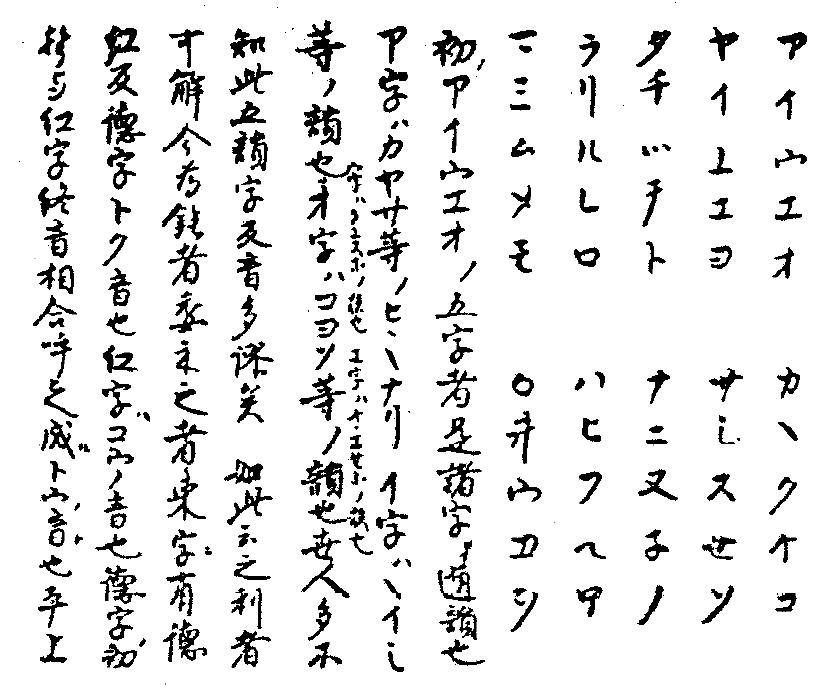 アイウエオ カヽクケコ
ヤイユエヨ サシスセソ
タチツテト ナニヌネノ
ラリルレロ ハヒフヘホ
マミムメモ ワヰウヱヲ
初アイウエオノ五字者是諸字ノ通韻也
ア字ハカヤサ等ノヒヽキナリ イ字ハヽイシ
等ノ韻也 オ字ハコヨソ等ノ韻也世人多不
知此五韻字反音多謬矣 如此云之利者
才解今為鈍者委示之者東字有徳
紅反徳字トク音也紅字ハコウノ音也徳字初
与紅字終音相合呼之成トウ音也平上